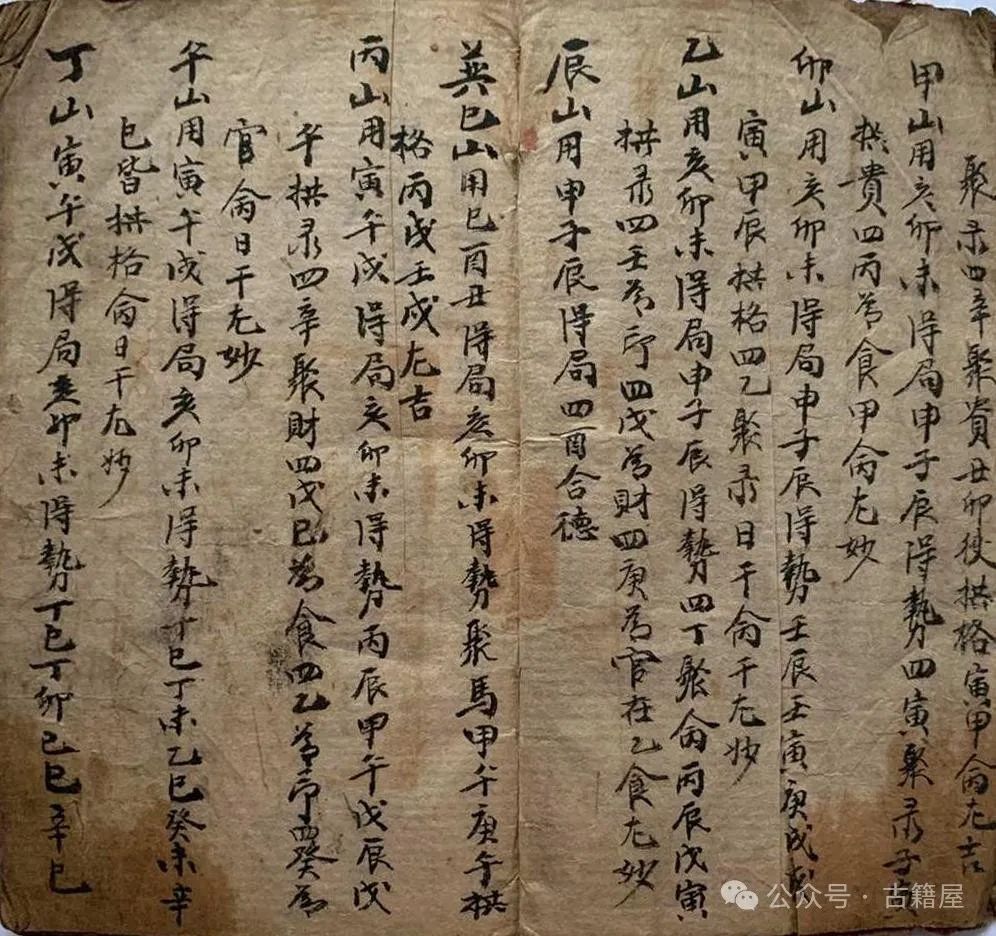 聚录四辛聚貴丑卯後拱格寅甲命尤吉
甲山用亥卯未得局申子辰得勢四寅聚录子
拱貴四丙為食甲命尤妙
卯山用亥卯未得局申子辰得勢壬辰壬寅庚戌
寅甲辰拱格四乙聚录日干命干尤妙
乙山用亥卯未得局申子辰得勢四丁聚命丙辰戊寅
拱录四壬為印四戊為財四庚為官在乙食尤妙
辰山用申子辰得局四酉合德
巽巳山用巳酉丑得局亥卯未得勢聚馬甲午庚午拱
格丙戌壬戌尤吉
丙山用寅午戌得局亥卯未得勢丙辰甲午戊辰戊
午拱录四辛聚財四戊巳為食四乙為印四癸為
官命日干尤妙
午山用寅午戌得局亥卯未得勢丁巳丁未乙巳癸未辛
巳皆拱格命日干尤妙
丁山寅午戌得局亥卯未得勢丁巳丁卯己巳辛巳
公众号·古籍屋